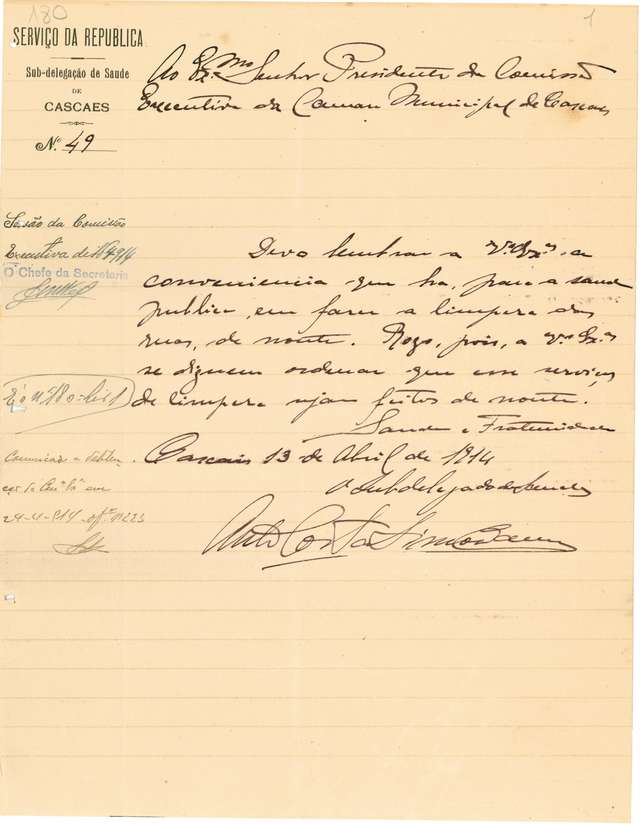 180
1
SERVIÇO DA REPUBLICA
Sub-delegação de Saude
DE
CASCAES
N.º 49
Ao Ex.mo Senhor Presidente da Comissão
Executiva da Camara Municipal de Cascaes
Sessão da Comissão
Executiva de 16-4-914
O Chefe da Secretaria
Devo lembrar a V.as Ex.as a
conveniencia que ha, para a saude
publica, em fazer a limpeza das
ruas, de noute. Rogo, pois, a V.as Ex.as
se dignem ordenar que esse serviço
de limpeza sejam feitos de noute.
Saude e Fraternidade
Cascais 13 de Abril de 1914
O Subdelegado de Saude
É o nº 180
Comunicado
em
24-4-914 off.º nº 223
Costa